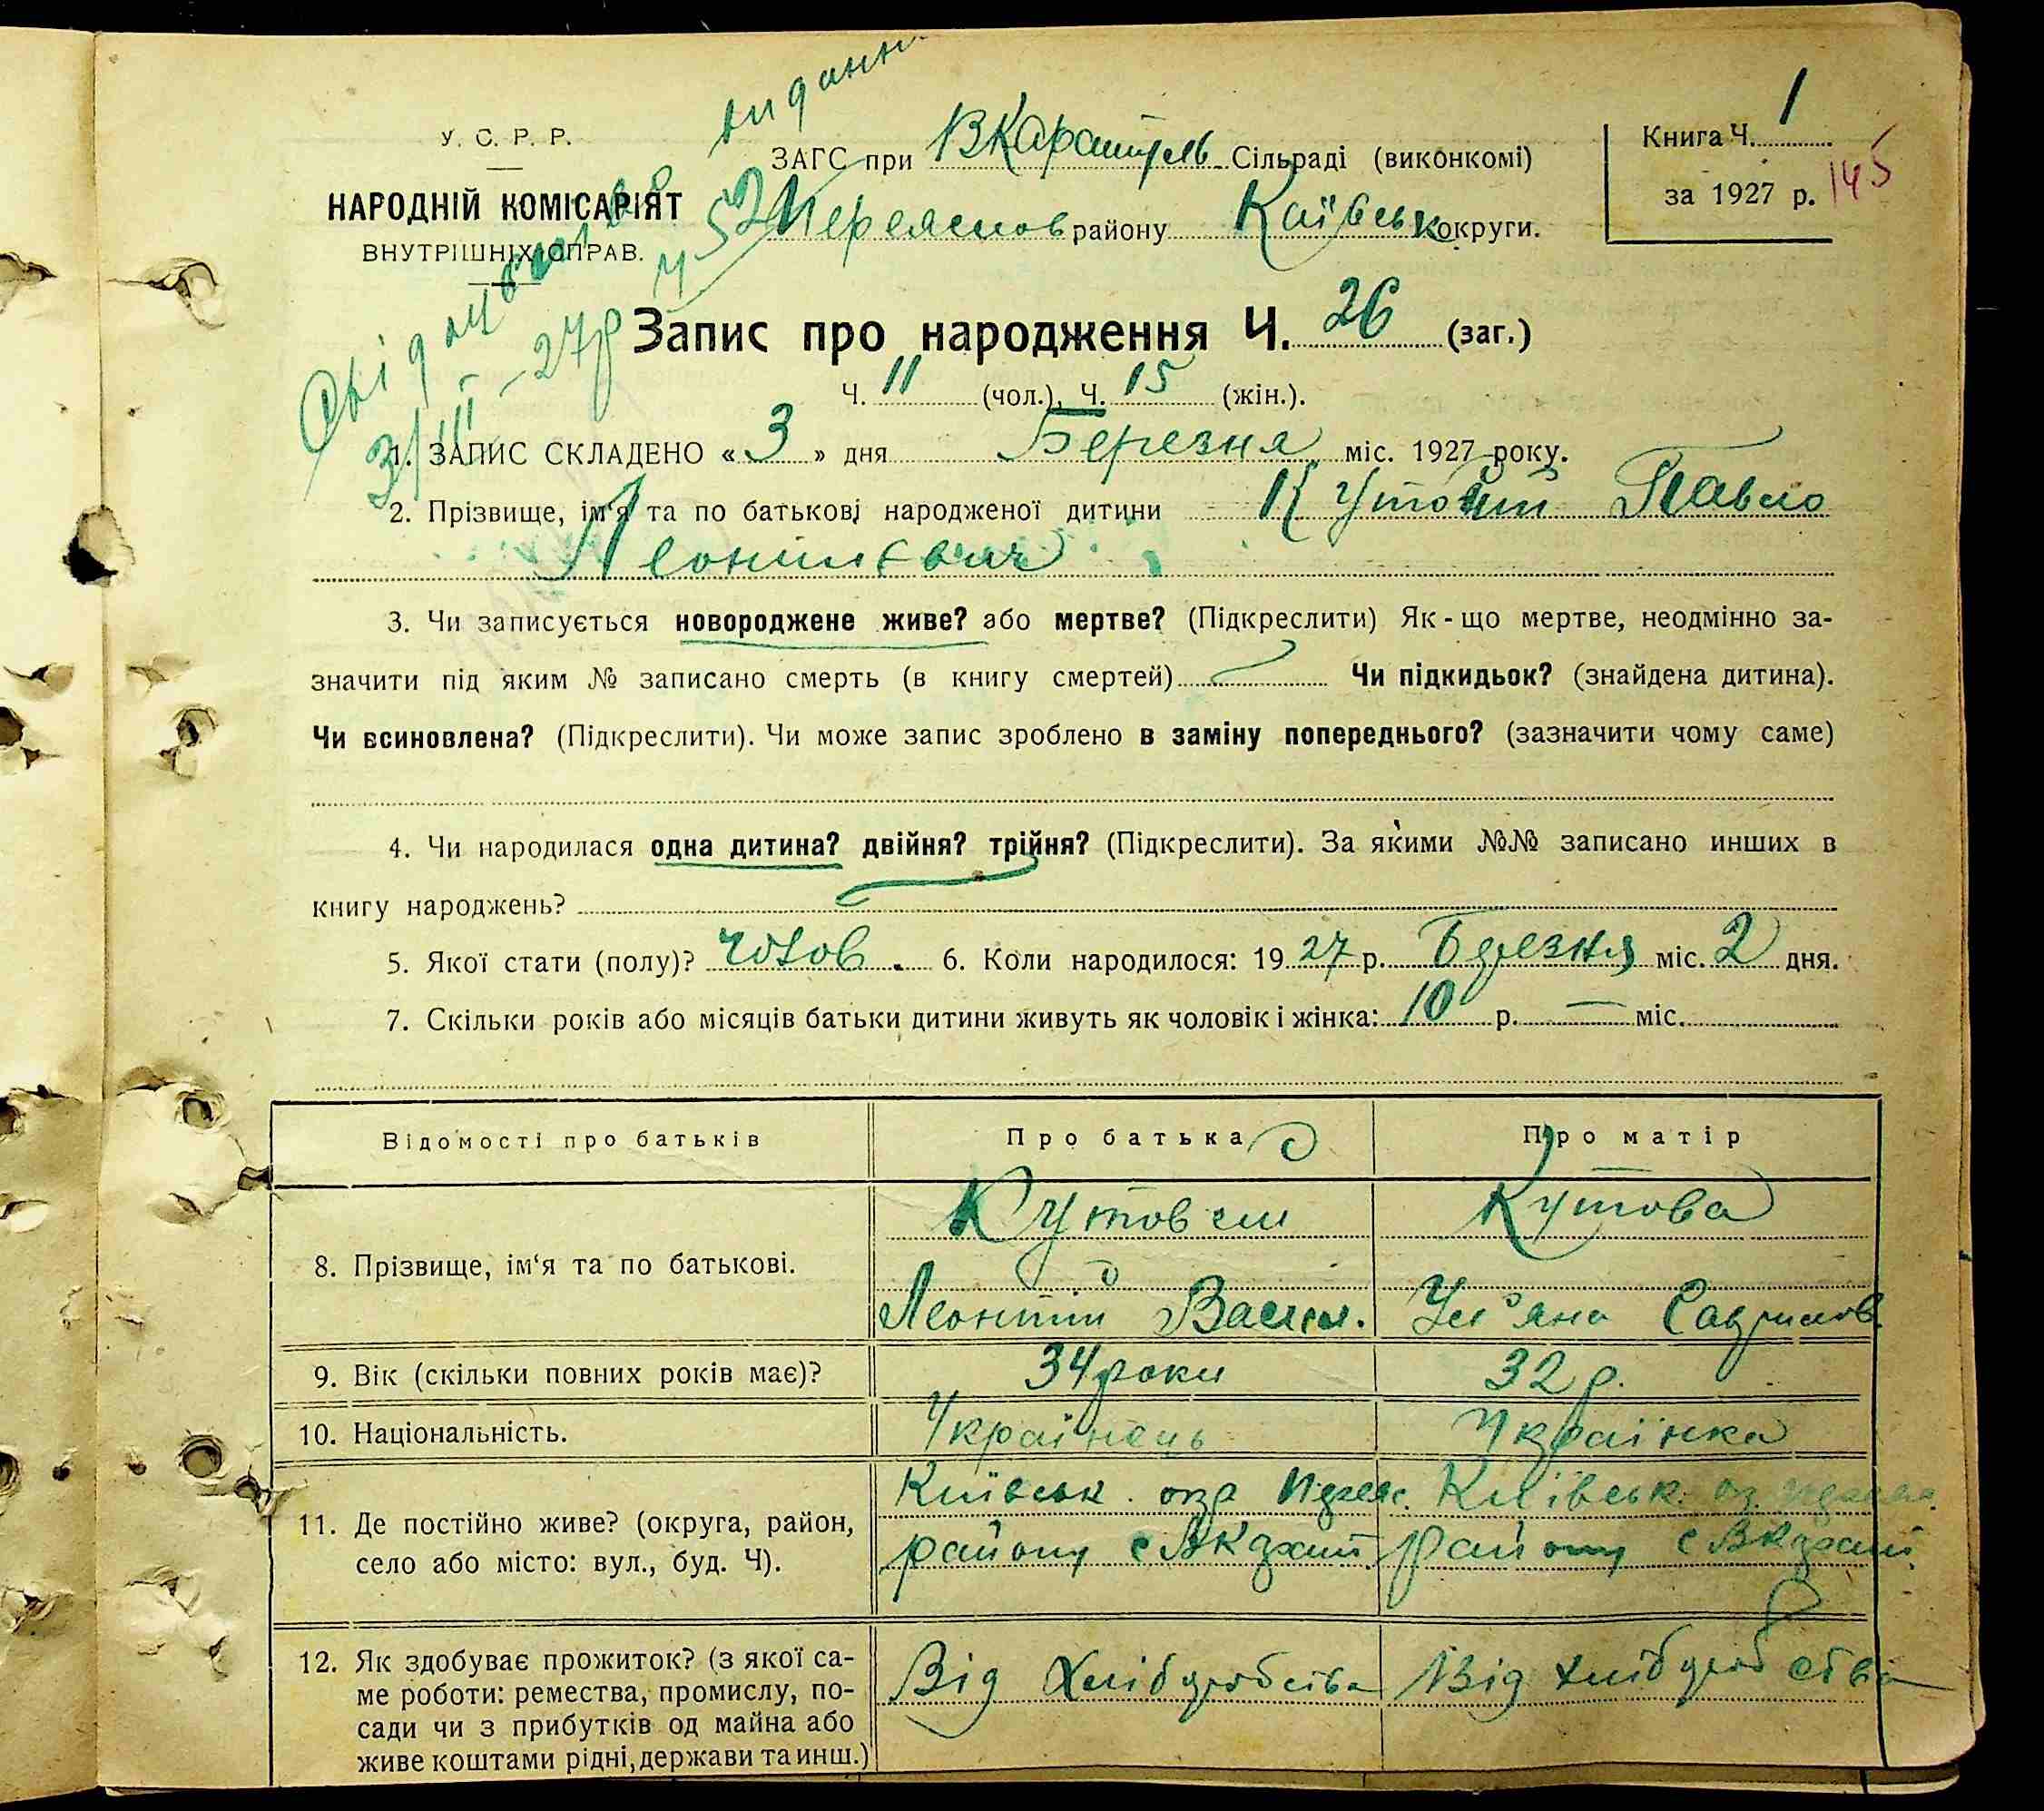 видання
У. С. Р. Р.
НАРОДНІЙ КОМІСАРІЯТ
ВНУТРІШНІХ СПРАВ.
ЗАГС при ВКаратуль Сільраді (виконкомі)
Переяслов району Київськ округи.
Книга Ч. 1
за 1927 р. 145
Запис про народження Ч. 26 (заг.)
Ч. 11 (чол.), Ч. 15 (жін.).
3/III – 27р
1. ЗАПИС СКЛАДЕНО « 3 » дня Березня міс. 1927 року.
2. Прізвище, ім'я та по батькові народженої дитини Кутовий Павло
Леонтієвич
3. Чи записується новороджене живе? або мертве? (Підкреслити) Як-що мертве, неодмінно за-
значити під яким № записано смерть (в книгу смертей) Чи підкидьок? (знайдена дитина).
Чи всиновлена? (Підкреслити). Чи може запис зроблено в заміну попереднього? (зазначити чому саме)
4. Чи народилася одна дитина? двійня? трійня? (Підкреслити). За якими №№ записано инших в
книгу народжень?
5. Якої стати (полу)? чолов. 6. Коли народилося: 1927 р. Березня міс. 2 дня.
7. Скільки років або місяців батьки дитини живуть як чоловік і жінка: 10 р. — міс.
Відомості про батьків Про батька Про матір
8. Прізвище, ім'я та по батькові.
Кутовий Кутова
Леонтій Васил. Ул'яна Гаврилов.
9. Вік (скільки повних років має)? 34 роки 32 р.
10. Національність. Українець Українка
11. Де постійно живе? (округа, район,
село або місто: вул., буд. Ч).
Київськ. окр Переяс. Київськ. ок.
району с ВКарат. району с ВКарат.
12. Як здобуває прожиток? (з якої са-
ме роботи: ремества, промислу, по-
сади чи з прибутків од майна або
живе коштами рідні, держави та инш.)
Від Хліборобства Від хліборобства